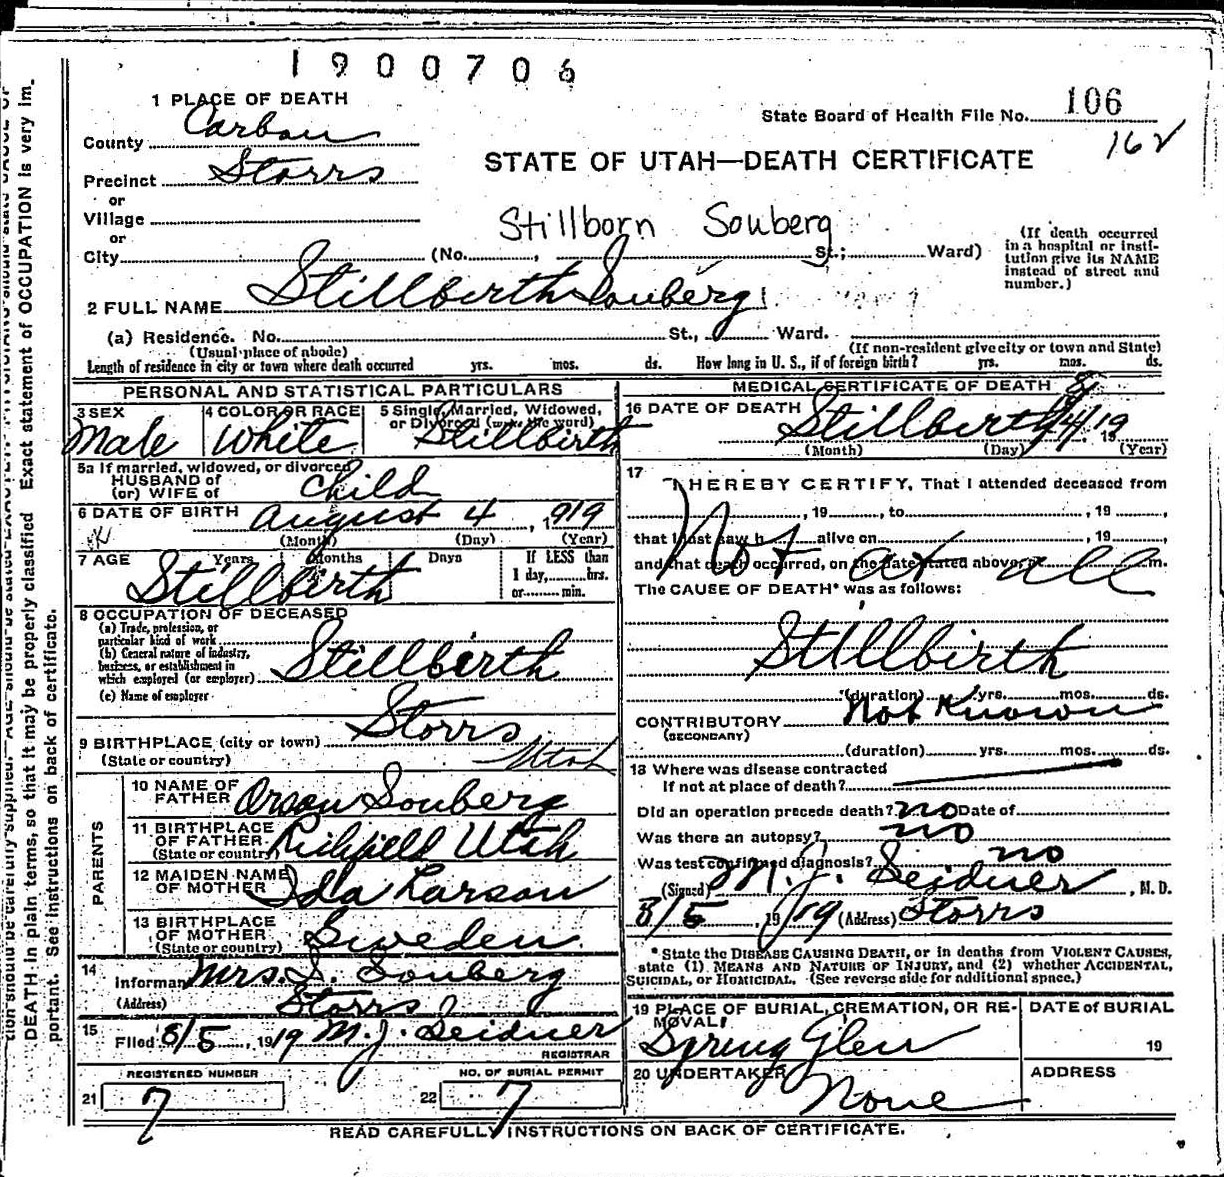 1900706
1 PLACE OF DEATH
State Board of Health File No. 106
162
County Carbon
Precinct Storrs
STATE OF UTAH—DEATH CERTIFICATE
or
Village
or
Stillborn Souberg
City (No. , St.; Ward)
(If death occurred
in a hospital or insti-
tution give its NAME
instead of street and
number.)
2 FULL NAME Stillbirth Souberg
(a) Residence. No. St., Ward.
(Usual place of abode) (If non-resident give city or town and State)
Length of residence in city or town where death occurred yrs. mos. ds. How long in U. S., if of foreign birth? yrs. mos. ds.
PERSONAL AND STATISTICAL PARTICULARS
3 SEX 4 COLOR OR RACE 5 Single, Married, Widowed,
or Divorced (write the word)
Male White Stillbirth
5a If married, widowed, or divorced
HUSBAND of
(or) WIFE of Child
6 DATE OF BIRTH August 4, 1919
(Month) (Day) (Year)
7 AGE Years Months Days If LESS than
1 day, hrs.
or min.
Stillbirth
8 OCCUPATION OF DECEASED
(a) Trade, profession, or
particular kind of work
(b) General nature of industry,
business, or establishment in
which employed (or employer) Stillbirth
(c) Name of employer
9 BIRTHPLACE (city or town) Storrs
(State or country) Utah
PARENTS
10 NAME OF
FATHER Orson Souberg
11 BIRTHPLACE
OF FATHER
(State or country) Richfield Utah
12 MAIDEN NAME
OF MOTHER Ida Larson
13 BIRTHPLACE
OF MOTHER
(State or country) Sweden
14
Informant Mrs. S. Souberg
(Address) Storrs
15
Filed 8/5, 1919 M. J. Seidner
REGISTRAR
REGISTERED NUMBER NO. OF BURIAL PERMIT
21 7 22 7
MEDICAL CERTIFICATE OF DEATH
16 DATE OF DEATH Stillbirth 8/4/19
(Month) (Day) (Year)
17
I HEREBY CERTIFY, That I attended deceased from
, 19 , to , 19 ,
that I last saw h alive on , 19 ,
and that death occurred, on the date stated above, m.
Not at all
The CAUSE OF DEATH* was as follows:
Stillbirth
(duration) yrs. mos. ds.
CONTRIBUTORY Not Known
(SECONDARY)
(duration) yrs. mos. ds.
18 Where was disease contracted
If not at place of death?
Did an operation precede death? no Date of
Was there an autopsy? no
Was test confirmed diagnosis? no
(Signed) M. J. Seidner, M. D.
8/5, 1919 (Address) Storrs
* State the DISEASE CAUSING DEATH, or in deaths from VIOLENT CAUSES,
state (1) MEANS AND NATURE OF INJURY, and (2) whether ACCIDENTAL,
SUICIDAL, or HOMICIDAL. (See reverse side for additional space.)
19 PLACE OF BURIAL, CREMATION, OR RE-
MOVAL DATE of BURIAL
Spring Glen 19
20 UNDERTAKER ADDRESS
None
READ CAREFULLY INSTRUCTIONS ON BACK OF CERTIFICATE.
tion should be carefully supplied. AGE should be stated EXACTLY. PHYSICIANS should state CAUSE OF
DEATH in plain terms, so that it may be properly classified. Exact statement of OCCUPATION is very im.
portant. See instructions on back of certificate.